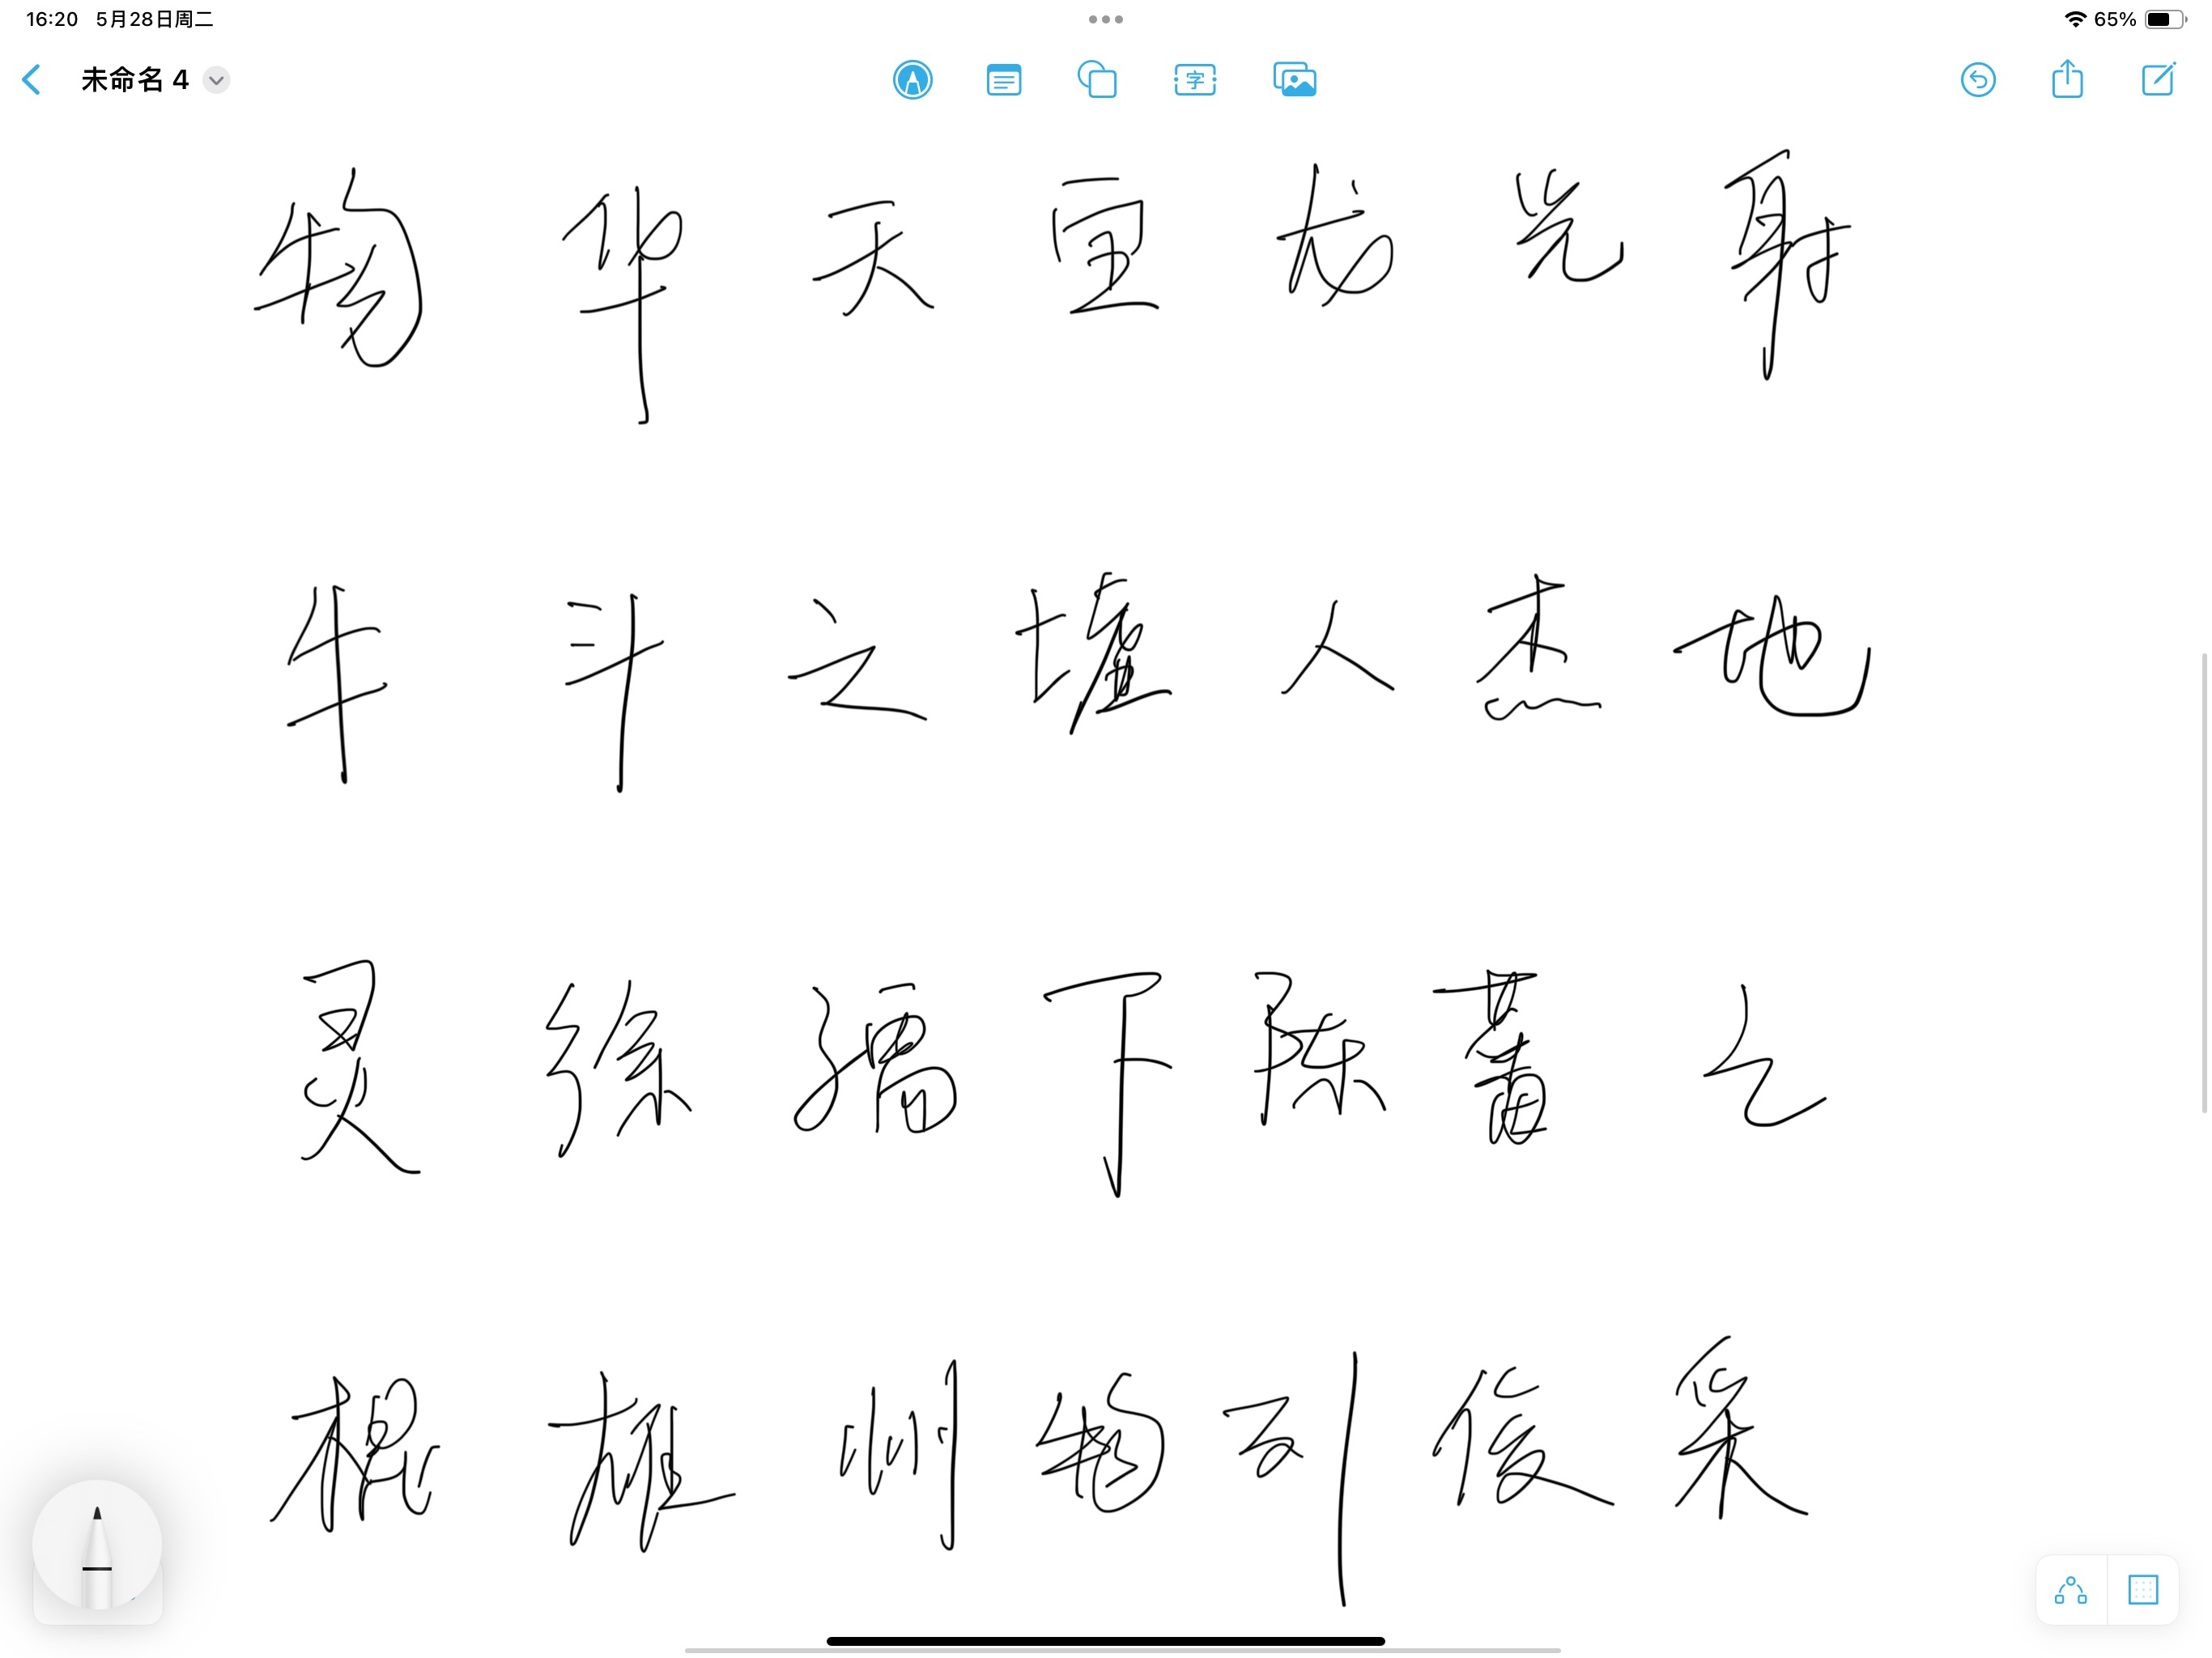 16:20 5月28日周二 65%
未命名 4
字
物华天宝龙光射
牛斗之墟人杰地
灵徐孺下陈蕃之
雄州物列俊采